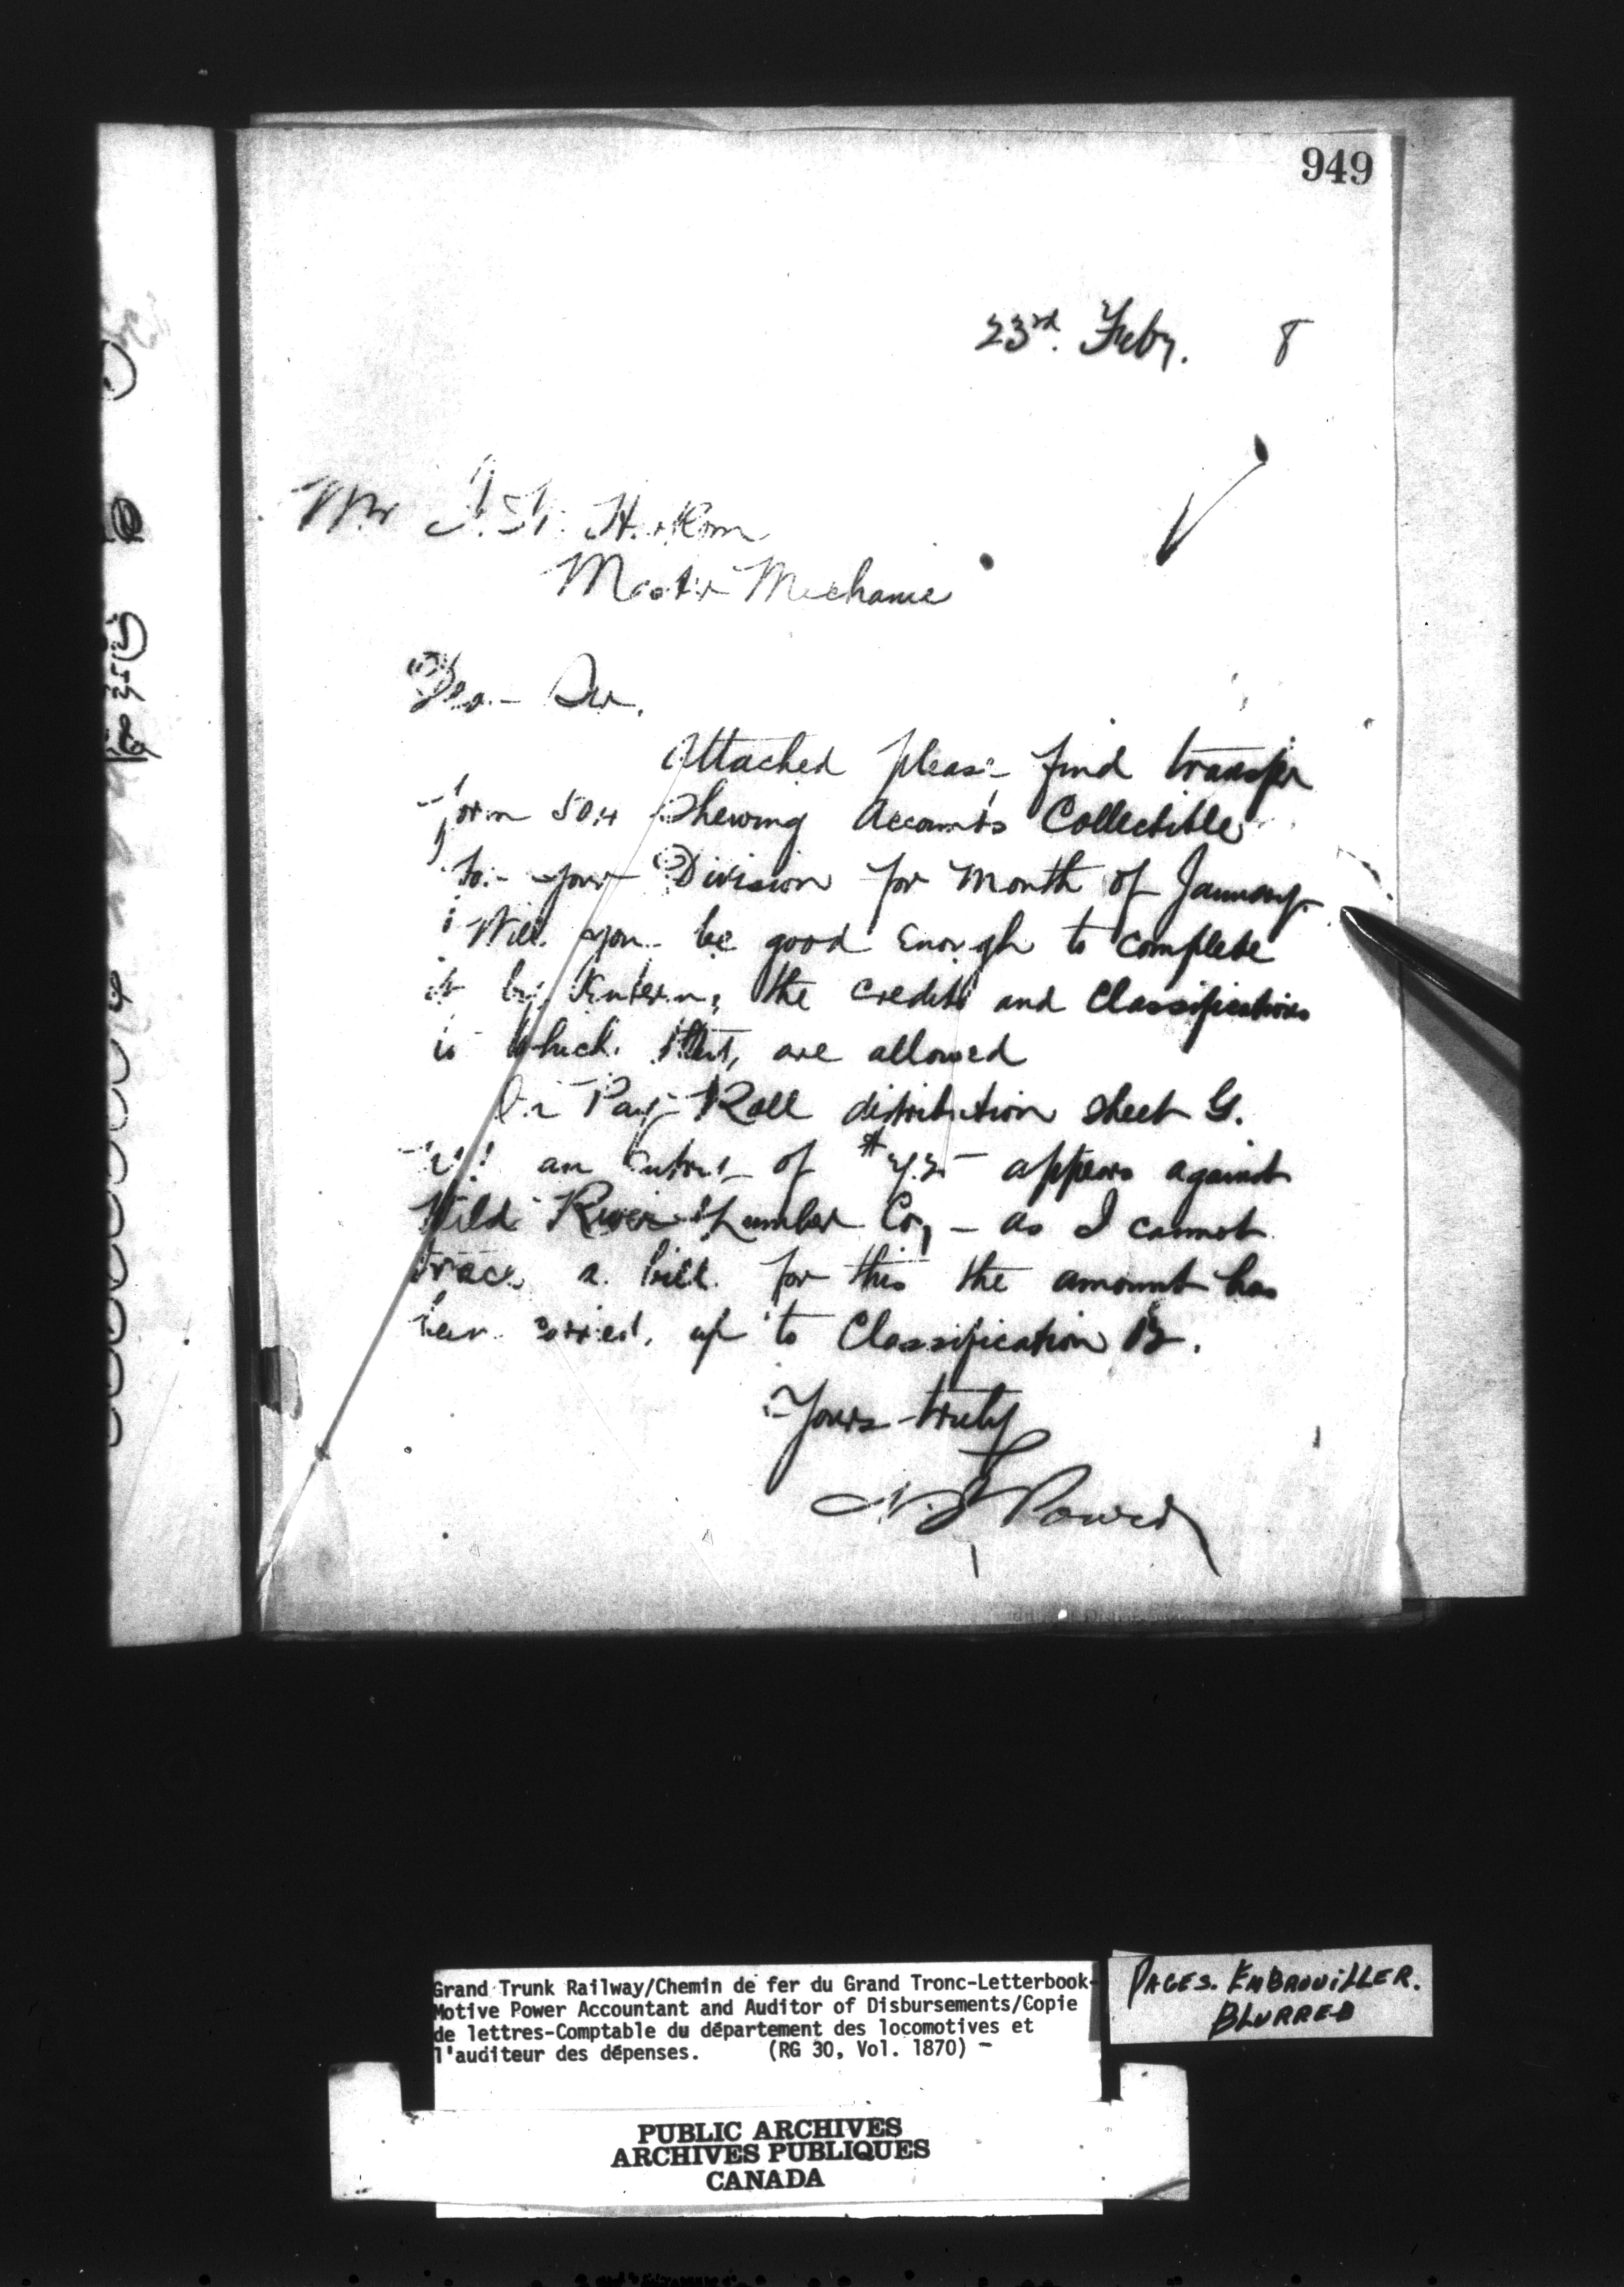 949
23rd. Feby. 8
Mr
Master Mechanic
Dear Sir,
Attached please find transfer
form 504 Shewing Accounts Collectible
for your Division for Month of January.
Will you be good Enough to complete
it by the credits and Classifications
to which they are allowed
On Pay Roll distribution sheet G.
an Entry of appears against
Wild River Lumber Co, - as I cannot
trace a bill for this the amount has
been carried up to Classification
Yours truly
Power
Grand Trunk Railway/Chemin de fer du Grand Tronc-Letterbook-
Motive Power Accountant and Auditor of Disbursements/Copie
de lettres-Comptable du département des locomotives et
l'auditeur des dépenses. (RG 30, Vol. 1870) -
PAGES. EMBROUILLER.
BLURRED
PUBLIC ARCHIVES
ARCHIVES PUBLIQUES
CANADA